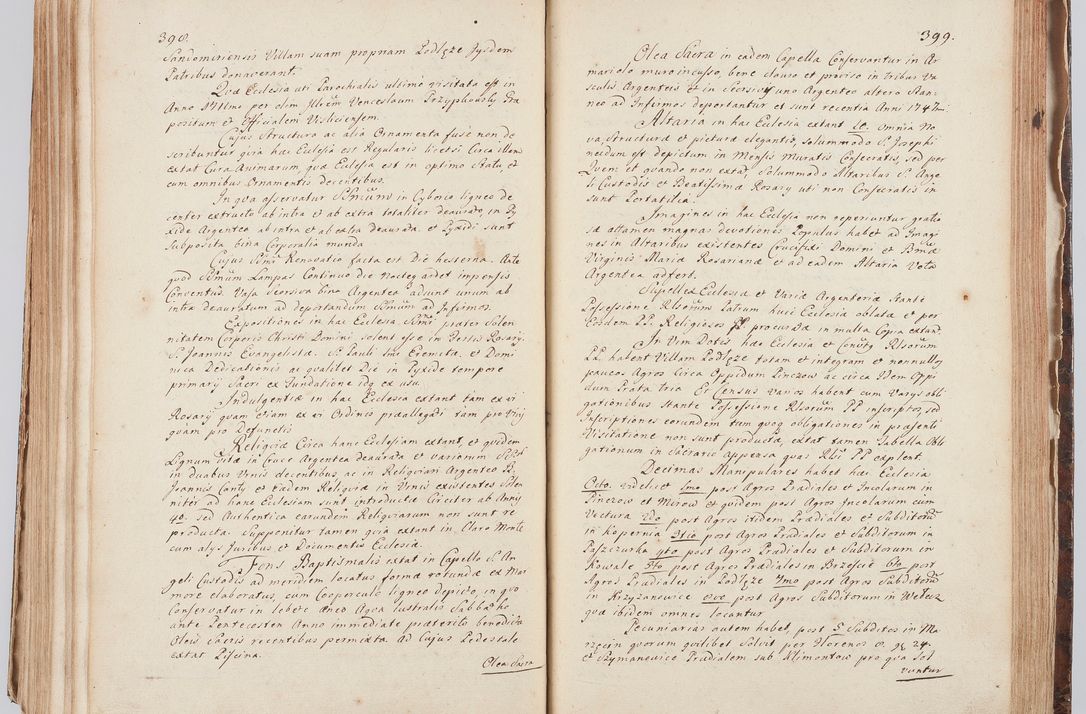 398.
Sandomiriensis Villam suam propriam Podlęże Jysdem
Patribus donaverant.
Quæ Ecclesia uti Parochialis ultimo visitata est in
Anno 1711mo per olim Illrem Venceslaum Przypkowsky Præ
positum et Officialem Visliciensem.
Cujus Structura ac alia Ornamenta fuse non de
scribuntur quia hæc Ecclesia est Regularis licet si Circa illam
extat Cura Animarum, quæ Ecclesia est in optimo Statu, et
cum omnibus Ornamentis decentibus.
In qua asservatur SSmum in Cyborio ligneo de
center extructo ab intra et ab extra totaliter deaurato, in Py
xide Argentea ab intra et ab extra deaurata. et Pyxidi sunt
Subposita bina Corporalia munda
Cujus SSmi Renovatio facta est Die hesterna. Ante
quod SSmum Lampas Continuo die Noctuq ardet impensis
Conventus. Vasa Seorsiva bina Argentea adsunt unum ab
intra deauratum ad deportandum SSmum ad Infirmos.
Expositiones in hac Ecclesia SSmi præter Solen
nitatem Corporis Christi Domini solent esse in Festis Rosary.
S. Joannis Evangelistæ. S. Pauli 1mi Eremitæ, et Domi
nica Dedicationis ac qualibet Die in Pyxide tempore
primary Sacri ex Fundatione idq ex usu.
Indulgentiæ in hac Ecclesia extant tam ex vi
Rosary quam etiam ex vi Ordinis præallegati tam pro Vivis
quam pro Defunctis
Reliquiæ Circa hanc Ecclesiam extant, et quidem
Lignum Vitæ in Cruce Argentea deaurata et variorum SSrum
in duabus Urnis decentibus, ac in Reliquiari Argenteo B.
Joannis Canty et eædem Reliquiæ in Urnis existentes Solen
niter ad hanc Ecclesiam sunt introductæ Circiter ab Annis
40. sed Authentica earundem Reliquiarum non sunt re
producta. Supponitur tamen quia extant in Claro Monte
cum alys Juribus et Documentis Ecclesiæ.
Fons Baptismalis extat in Capella S. An
geli Custodis ad meridiem locatus forma rotunda ex Mar
more elaboratus, cum Cooperculo ligneo depicto, in quo
Conservatur in lebete æneo Aqva lustralis Sabbatho
ante Pentecosten Anno immediate præterito benedicta
Oleis Sacris recentibus permixta. ad Cujus Pedestale
extat Piscina.
Olea Sacra
399.
Olea Sacra in eadem Capella Conservantur in Ar
mariolo muro incusso, bene clauso et præciso in tribus Va
sculis Argenteis et in Seorsivo uno Argenteo altero Stan
neo ad Infirmos deportantur et sunt recentia Anni 1747mi
Altaria in hac Ecclesia extant 10. omnia No
va Structura et pictura elegantia, solummodo S. Josephi
necdum est depictum in Mensis Muratis Consecratis, sed per
Quem et quando non extat, Solummodo Altaribus S. Ange
li Custodis et Beatissimæ Rosary uti non Consecratis in
sunt Portatilia.
Imagines in hac Ecclesia non reperiuntur gratio
sæ attamen magnas devotiones Populus habet ad Imagi
nes in Altaribus existentes Crucifixi Domini et Bmæ
Virginis Mariæ Rosarianæ et ad eadem Altaria Vota
Argentea adfert.
Supellex Ecclesiæ et Varia Argenteria stante
Possessione Rlsorum Patrum huic Ecclesiæ oblata et per
Eosdem PP. Religiosos procurata in multa Copia extant.
In Vim Dotis hæc Ecclesia et Convtg Rlsorum
PP. habent Villam Podłęże totam et integram et nonnullos
paucos Agros Circa Oppidum Pinczow ac circa Idem Oppi
dum Prata tria Et Census varios habent cum Varys obli
gationibus Stante Possessione Rlsorum PP. inscriptos, sed
Inscriptiones eorundem tum quoq obligationes in præsenti
Visitatione non sunt productæ, extat tamen Tabella Obli
gationum in Sacrario appensa quas Rlsi PP. explent.
Decimas Manipulares habet hæc Ecclesia
Octo. videlicet 1mo post Agros Prædiales et Incolarum in
Pinczow et Mirow et quidem post Agros Incolarum cum
Vectura 2do post Agros itidem Prædiales et Subditorum
in Kopernia 3tio post Agros Prædiales et Subditorum in
Pasczurka 4to post Agros Prædiales et Subditorum in
Kowale 5to post Agros Prædiales in Brzescie 6to post
Agros Prædiales in Podłęże 7mo post Agros Subditorum
in Krzyżanowice 8vo post Agros Subditorum in Wełecz
quæ ibidem omnes locantur
Pecuniarias autem habet, post 5 Subditos in Ma
rzęcin quorum quilibet Solvit per Florenos 0. gr 24.
et Szymanowice Prædialem sub Klimontow pro qua Sol
vuntur